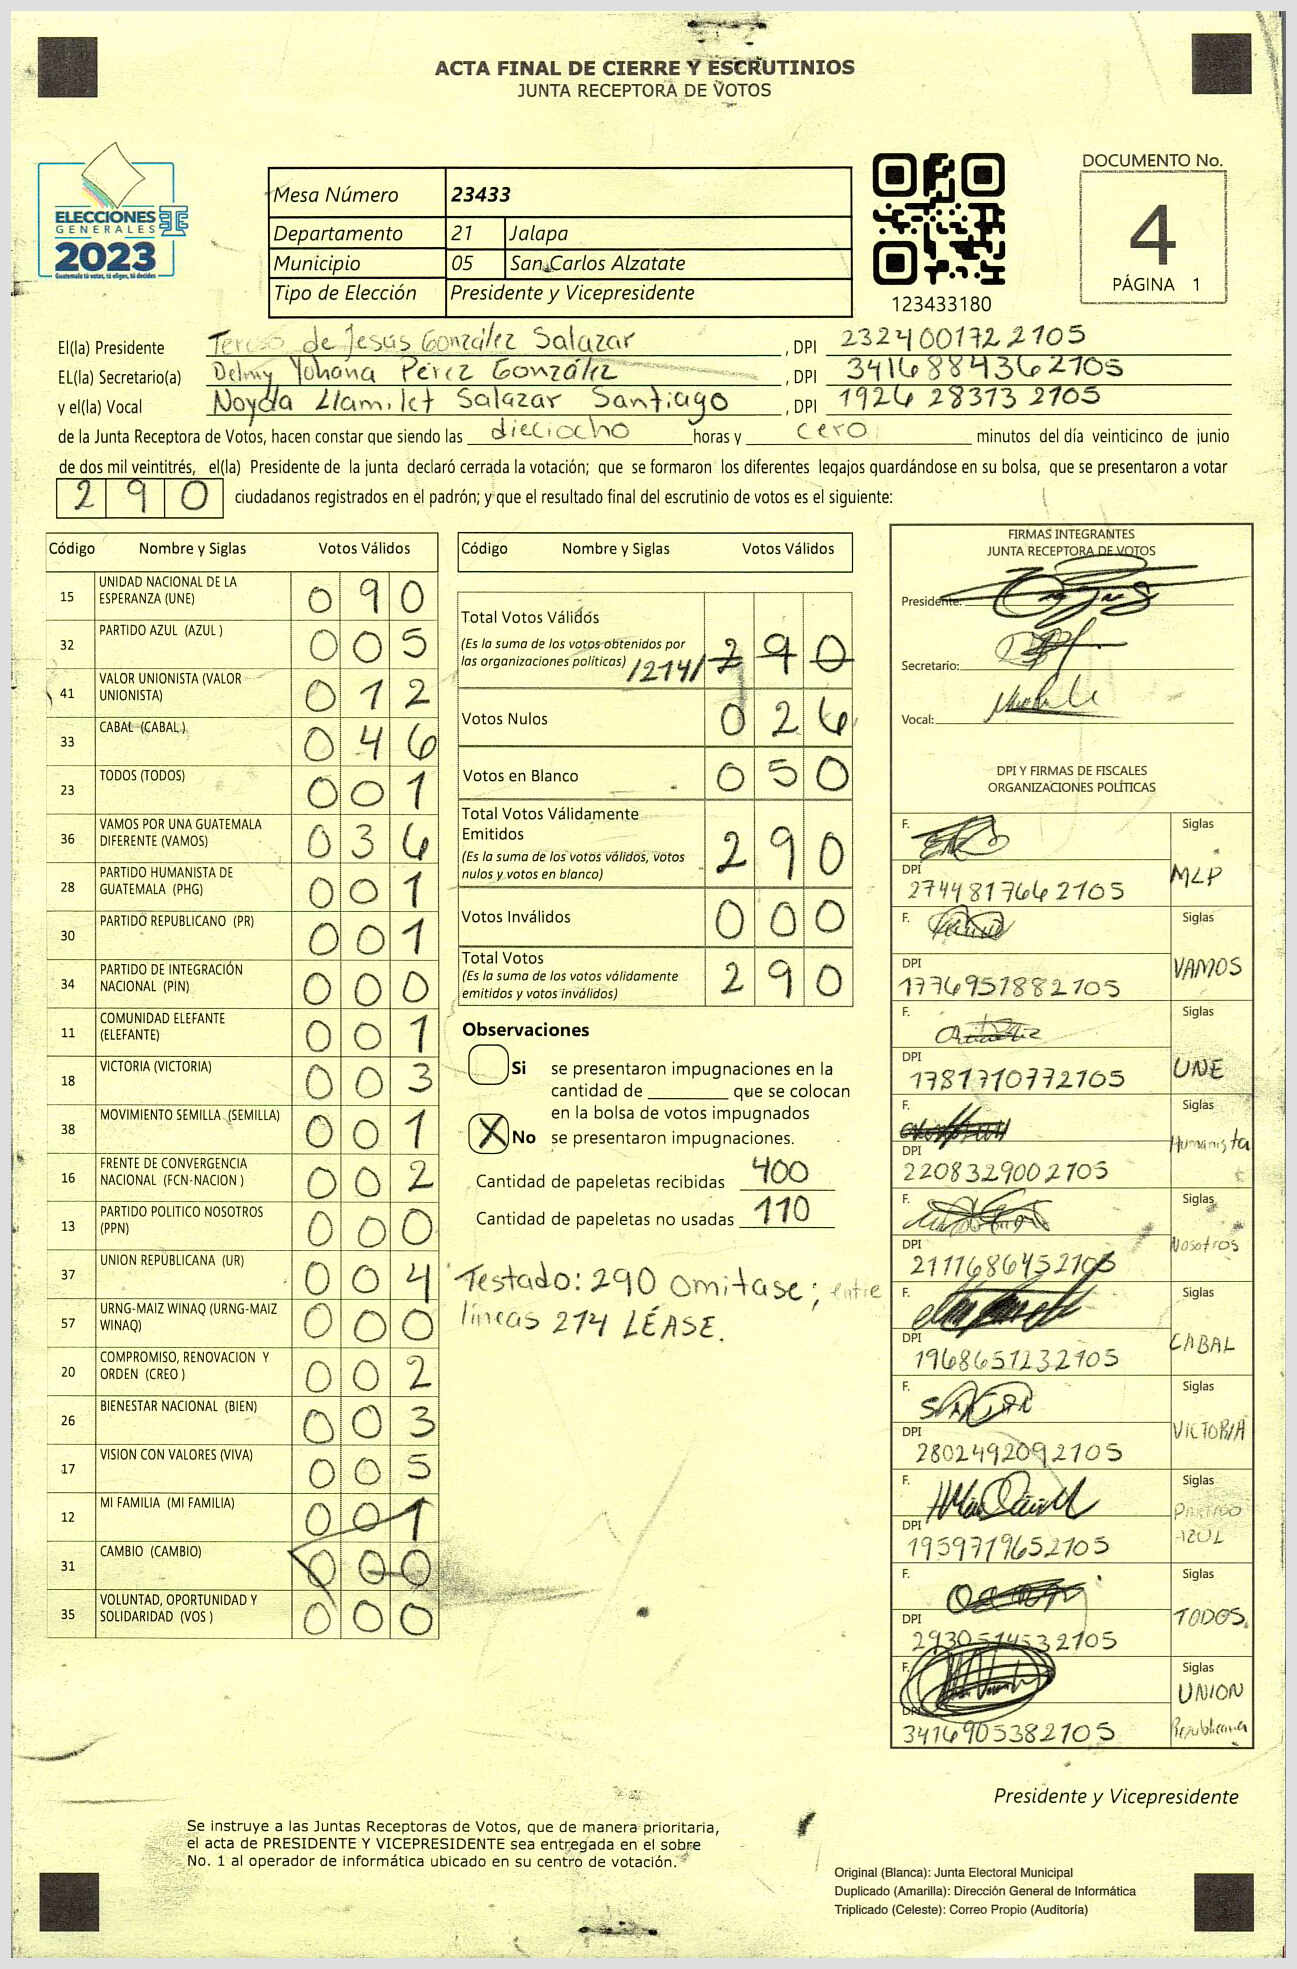 ACTA FINAL DE CIERRE Y ESCRUTINIOS
JUNTA RECEPTORA DE VOTOS
ELECCIONES
GENERALES
2023
Guatemala tú votas, tú eliges, tú decides
Mesa Número 23433
Departamento 21 Jalapa
Municipio 05 San Carlos Alzatate
Tipo de Elección Presidente y Vicepresidente
123433180
DOCUMENTO No.
4
PÁGINA 1
El(la) Presidente Tereso de Jesús González Salazar, DPI 232400172 2105
EL(la) Secretario(a) Delmy Yohana Pérez González, DPI 341688436 2105
y el(la) Vocal Noyda Llamilet Salazar Santiago, DPI 1926 28373 2105
de la Junta Receptora de Votos, hacen constar que siendo las dieciocho horas y cero minutos del día veinticinco de junio
de dos mil veintitrés, el(la) Presidente de la junta declaró cerrada la votación; que se formaron los diferentes legajos guardándose en su bolsa, que se presentaron a votar
290 ciudadanos registrados en el padrón; y que el resultado final del escrutinio de votos es el siguiente:
Código Nombre y Siglas Votos Válidos
15 UNIDAD NACIONAL DE LA ESPERANZA (UNE) 090
32 PARTIDO AZUL (AZUL ) 005
41 VALOR UNIONISTA (VALOR UNIONISTA) 012
33 CABAL (CABAL ) 046
23 TODOS (TODOS) 001
36 VAMOS POR UNA GUATEMALA DIFERENTE (VAMOS) 036
28 PARTIDO HUMANISTA DE GUATEMALA (PHG) 001
30 PARTIDO REPUBLICANO (PR) 001
34 PARTIDO DE INTEGRACIÓN NACIONAL (PIN) 000
11 COMUNIDAD ELEFANTE (ELEFANTE) 001
18 VICTORIA (VICTORIA) 003
38 MOVIMIENTO SEMILLA (SEMILLA) 001
16 FRENTE DE CONVERGENCIA NACIONAL (FCN-NACION ) 002
13 PARTIDO POLITICO NOSOTROS (PPN) 000
37 UNION REPUBLICANA (UR) 004
57 URNG-MAIZ WINAQ (URNG-MAIZ WINAQ) 000
20 COMPROMISO, RENOVACION Y ORDEN (CREO ) 002
26 BIENESTAR NACIONAL (BIEN) 003
17 VISION CON VALORES (VIVA) 005
12 MI FAMILIA (MI FAMILIA) 001
31 CAMBIO (CAMBIO) 000
35 VOLUNTAD, OPORTUNIDAD Y SOLIDARIDAD (VOS ) 000
Código Nombre y Siglas Votos Válidos
Total Votos Válidos
(Es la suma de los votos obtenidos por
las organizaciones políticas) /214/ 290
Votos Nulos 026
Votos en Blanco 050
Total Votos Válidamente
Emitidos
(Es la suma de los votos válidos, votos
nulos y votos en blanco) 290
Votos Inválidos 000
Total Votos
(Es la suma de los votos válidamente
emitidos y votos inválidos) 290
Observaciones
Si se presentaron impugnaciones en la
cantidad de ________ que se colocan
en la bolsa de votos impugnados
X No se presentaron impugnaciones.
Cantidad de papeletas recibidas 400
Cantidad de papeletas no usadas 110
Testado: 290 omitase; entre
líneas 214 LÉASE.
FIRMAS INTEGRANTES
JUNTA RECEPTORA DE VOTOS
Presidente:
Secretario:
Vocal:
DPI Y FIRMAS DE FISCALES
ORGANIZACIONES POLÍTICAS
F. Siglas
DPI 274481766 2105 MLP
F. Siglas
DPI 1776951882105 VAMOS
F. Siglas
DPI 1781710772105 UNE
F. Siglas
DPI 2208329002105 Humanista
F. Siglas
DPI 2111686452105 Nosotros
F. Siglas
DPI 1968651232105 CABAL
F. Siglas
DPI 2802492092105 VICTORIA
F. Siglas
DPI 1959719652105 PARTIDO AZUL
F. Siglas
DPI 2930514532105 TODOS
F. Siglas
DPI 3416905382105 UNION Republicana
Presidente y Vicepresidente
Se instruye a las Juntas Receptoras de Votos, que de manera prioritaria,
el acta de PRESIDENTE Y VICEPRESIDENTE sea entregada en el sobre
No. 1 al operador de informática ubicado en su centro de votación.
Original (Blanca): Junta Electoral Municipal
Duplicado (Amarilla): Dirección General de Informática
Triplicado (Celeste): Correo Propio (Auditoría)